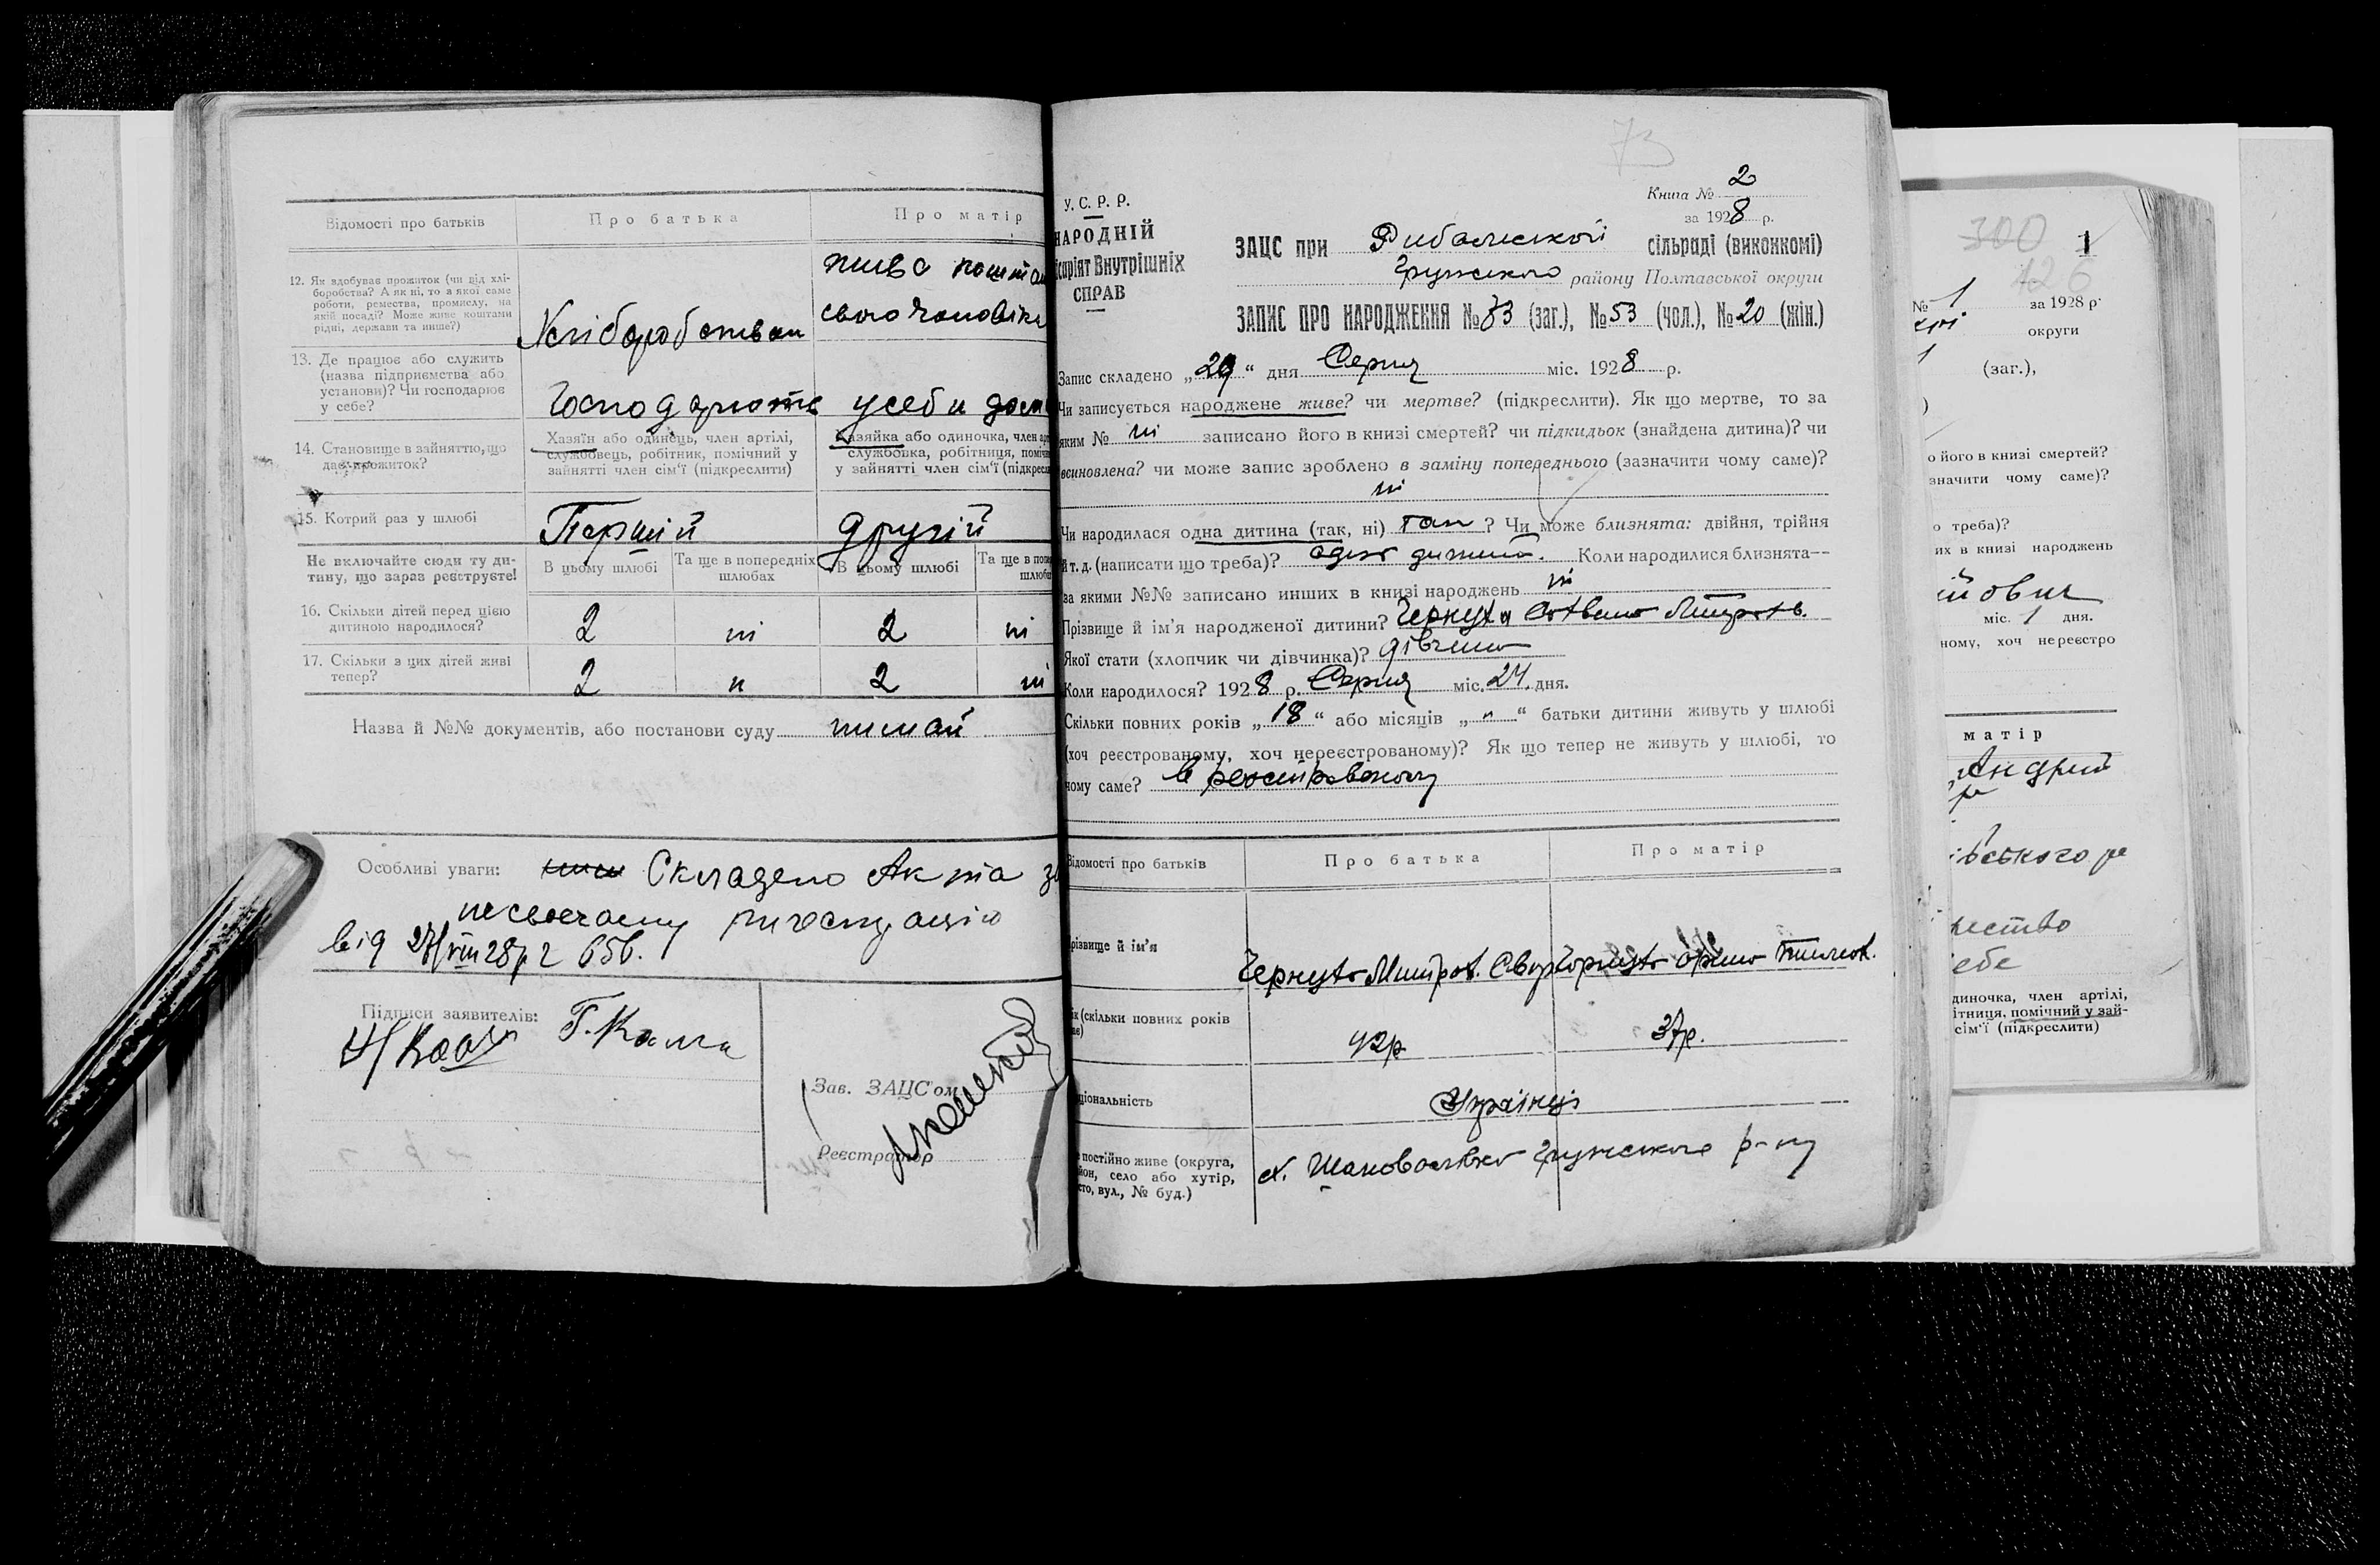 Відомості про батьків
Про батька
Про матір
12. Як здобуває прожиток (чи від хлі-
боробства? А як ні, то з якої саме
роботи, ремества, промислу, на
якій посаді? Може живе коштами
рідні, держави та инше?)
Хліборобством
жива кошта
свого чоловіка
13. Де працює або служить
(назва підприємства або
установи)? Чи господарює
у себе?
Господарюють у себе дома
14. Становище в зайняттю, що
дає прожиток?
Хазяїн або одинець, член артілі,
службовець, робітник, помічний у
зайнятті член сім'ї (підкреслити)
Хазяйка або одиночка, член арт
службовка, робітниця, поміч
у зайнятті член сім'ї (підкресл
15. Котрий раз у шлюбі
Першій
Другій
Не включайте сюди ту ди-
тину, що зараз реєструєте!
В цьому шлюбі
Та ще в попередніх
шлюбах
В цьому шлюбі
Та ще в попе
шлюба
16. Скільки дітей перед цією
дитиною народилося?
2 ні 2 ні
17. Скільки з цих дітей живі
тепер?
2 н 2 ні
Назва й №№ документів, або постанови суду
Особливі уваги: Складено Акта за
несвоечасну
від 27/VIII 28р
Підписи заявителів:
Зав. ЗАЦС'ом
Реєстратор
73
У. С. Р. Р.
НАРОДНІЙ
ісаріят Внутрішніх
СПРАВ
Книга № 2
за 1928 р.
ЗАЦС при Рибалської сільраді (виконкомі)
Грунського району Полтавської округи
ЗАПИС ПРО НАРОДЖЕННЯ № 73 (заг.), № 53 (чол.), № 20 (жін.)
Запис складено „29“ дня Серпня міс. 1928 р.
Чи записується народжене живе? чи мертве? (підкреслити). Як що мертве, то за
яким № ні записано його в книзі смертей? чи підкидьок (знайдена дитина)? чи
всиновлена? чи може запис зроблено в заміну попереднього (зазначити чому саме)?
ні
Чи народилася одна дитина (так, ні) так ? Чи може близнята: двійня, трійня
й т. д. (написати що треба)? одна дитина. Коли народилися близнята—
за якими №№ записано инших в книзі народжень ні
Прізвище й ім'я народженої дитини? Чернуха
Якої стати (хлопчик чи дівчинка)? дівчина
Коли народилося? 1928 р. Серпня міс. 24 дня.
Скільки повних років „18“ або місяців „н“ батьки дитини живуть у шлюбі
(хоч реєстрованому, хоч нереєстрованому)? Як що тепер не живуть у шлюбі, то
чому саме? в
Відомості про батьків
Про батька
Про матір
різвище й ім'я
Чернуха
ік (скільки повних років
42р
37р.
ціональність
Українці
постійно живе (округа,
йон, село або хутір,
сто, вул., № буд.)
х. Шаповалівка Грунського р-ну
300
126
1
№ 1
за 1928 р.
округи
(заг.),
о його в книзі смертей?
значити чому саме)?
о треба)?
их в книзі народжень
міс. 1 дня.
ному, хоч нереєстро
матір
ебе
диночка, член артілі,
ітниця, помічний у зай-
сім'ї (підкреслити)